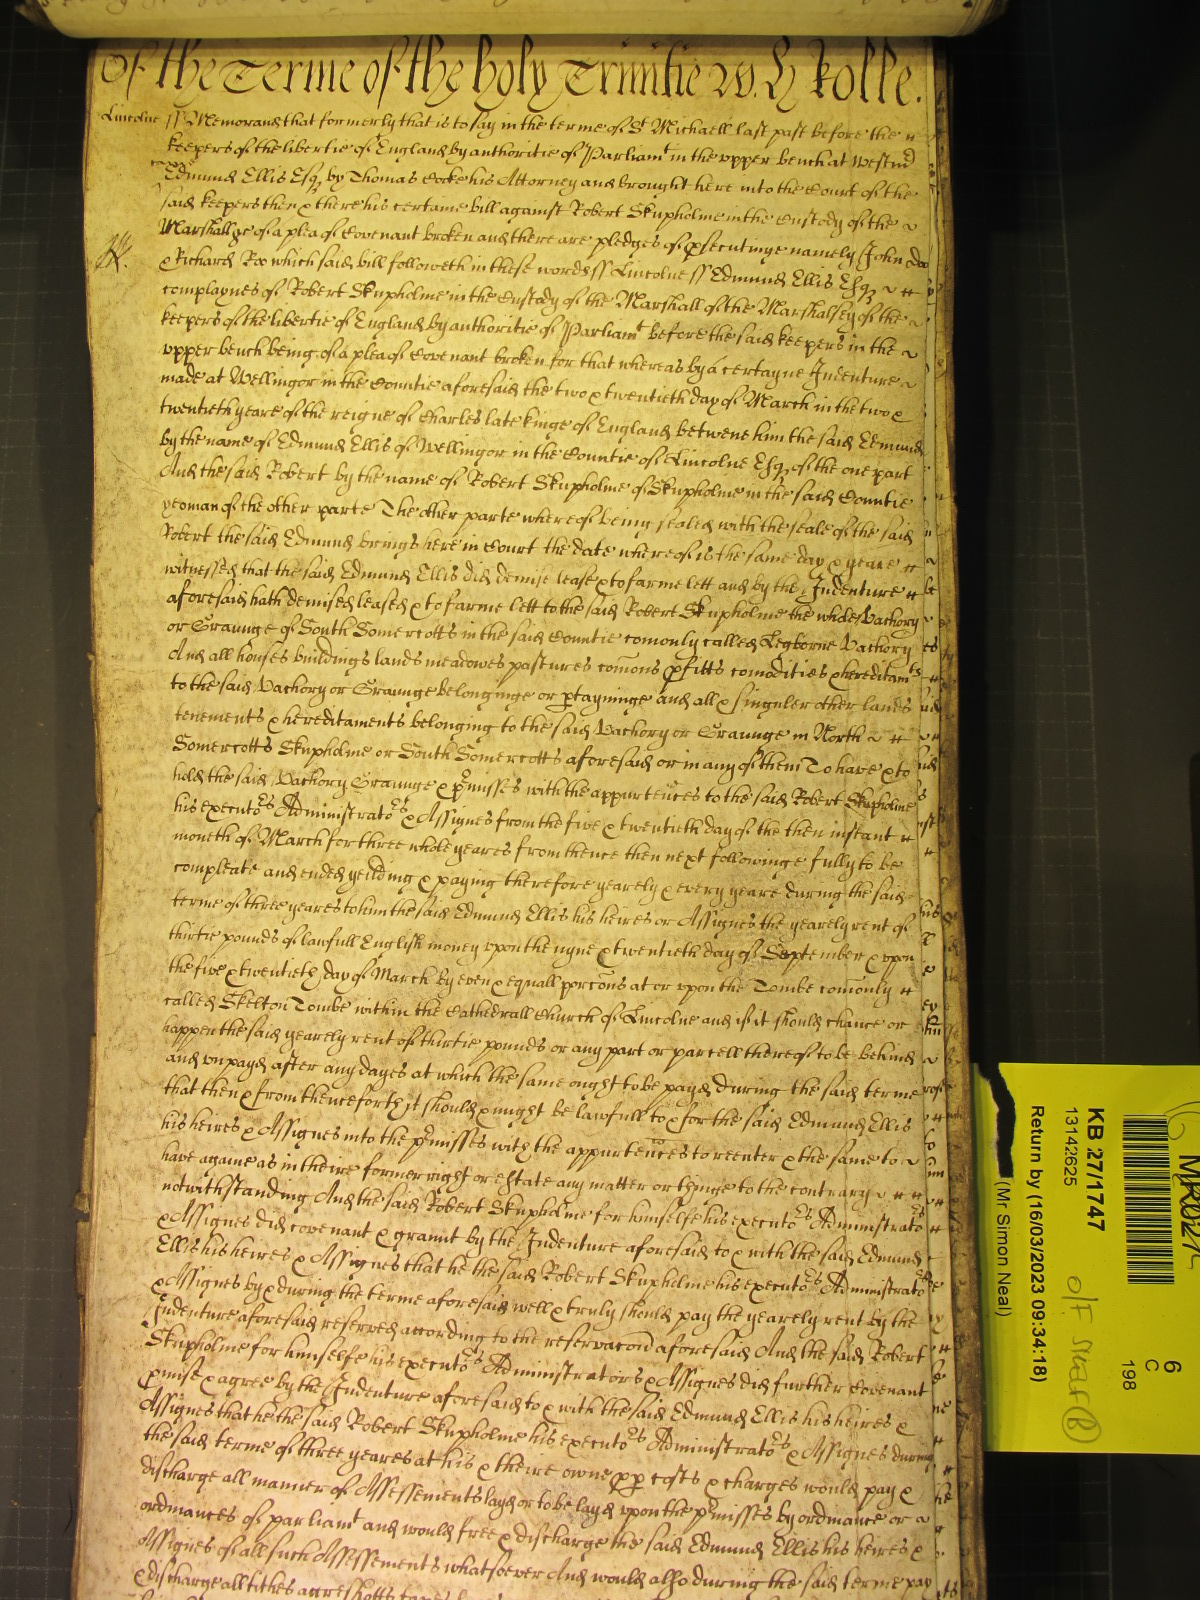 Of the Terme of the holy Trinitie W. H Rolle.
Lincolne ss Memorand that formerly that is to say in the terme of St Michaell last past before the
keepers of the libertie of England by authoritie of Parliamt in the upper bench at Westmr
came
Edmund Ellis Esqr by Thomas Cocke his Attorney and brought here into the Court of the
said keepers then & there his certaine bill against Robert Skupholme in the Custody of the
Marshall &c of a plea of Covenant broken and there are pledges of psecutinge namely John Doo
& Richard Roo which said bill followeth in these words ss Lincolne ss Edmund Ellis Esqr
complaynes of Robert Skupholme in the Custody of the Marshall of the Marshalsey of the
keepers of the libertie of England by authoritie of Parliamt before the said keepers in the
upper bench being of a plea of Covenant broken for that whereas by a certayne Indenture
made at Wellingor in the Countie aforesaid the two & twentieth day of March in the two &
twentieth yeare of the reigne of Charles late kinge of England betwene him the said Edmund
by the name of Edmund Ellis of Wellingor in the Countie of Lincolne Esqr of the one part
And the said Robert by the name of Robert Skupholme of Skupholme in the said Countie
yeoman of the other parte The other parte whereof being sealed with the seale of the said
Robert the said Edmund brings here in Court the date whereof is the same day & yeare
witnessed that the said Edmund Ellis did demise lease & to farme lett and by the Indenture
aforesaid hath demised leased & to farme lett to the said Robert Skupholme the whole Vachory
or Graunge of South Somercotts in the said Countie comonly called Legborne Vachory
And all houses buildings lands meadowes pastures comons pfitts comodities & hereditamts
to the said Vachory or Graunge belonginge or ptayninge and all & singuler other lands
tenements & hereditaments belonging to the said Vachory or Graunge in North
Somercotts Skupholme or South Somercotts aforesaid or in any of them To have & to
hold the said Vachory Graunge & pmisses with the appurtences to the said Robert Skupholme
his executors Administrators & Assignes from the five & twentieth day of the then instant
moneth of March for three whole yeares from thence then next followinge fully to be
compleate and ended yeilding & paying therefore yearely & every yeare during the said
terme of three yeares to him the said Edmund Ellis his heires or Assignes the yearely rent of
thirtie pounds of lawfull English money upon the nyne & twentieth day of September & upon
the five & twentieth day of March by even & equall porcons at or upon the Tombe comonly
called Skelton Tombe within the Cathedrall Church of Lincolne and if it should chance or
happen the said yearely rent of thirtie pounds or any part or parcell thereof to be behind
and unpayd after any dayes at which the same ought to be payd during the said terme
that then & from thenceforth it should & might be lawfull to & for the said Edmund Ellis
his heires & Assignes into the pmisses with the appurtences to reenter & the same to
have againe as in theire former right or estate any matter or thinge to the contrary
notwithstanding And the said Robert Skupholme for himselfe his executors Administrators
& Assignes did covenant & graunt by the Indenture aforesaid to & with the said Edmund
Ellis his heires & Assignes that he the said Robert Skupholme his executors Administrators
& Assignes by & during the terme aforesaid well & truly should pay the yearely rent by the
Indenture aforesaid reserved according to the reservacon aforesaid And the said Robert
Skupholme for himselfe his executors Administrators & Assignes did further Covenant
pmise & agree by the Indenture aforesaid to & with the said Edmund Ellis his heires &
Assignes that he the said Robert Skupholme his executors Administrators & Assignes during
the said terme of three yeares at his & theire owne pp costs & charges would pay &
discharge all manner of Assessements layd or to be layd upon the pmisses by ordinance or
ordinances of parliamt and would free & discharge the said Edmund Ellis his heires &
Assignes of all such Assessements whatsoever And would also during the said terme pay
& discharge all tithes
KB 27/1747
13142625
Return by (16/03/2023 09:34:18)
(Mr Simon Neal)
6
C
198